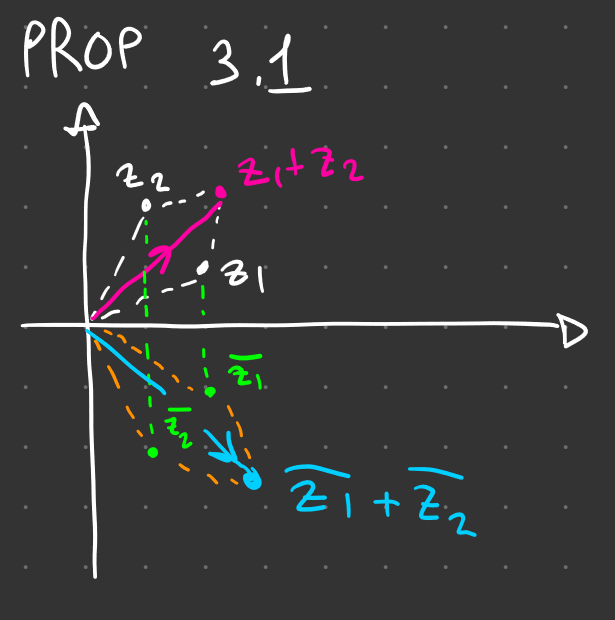 PROP 3.1
z₂
z₁+z₂
z₁
z̅₁
z̅₂
z̅₁ + z̅₂